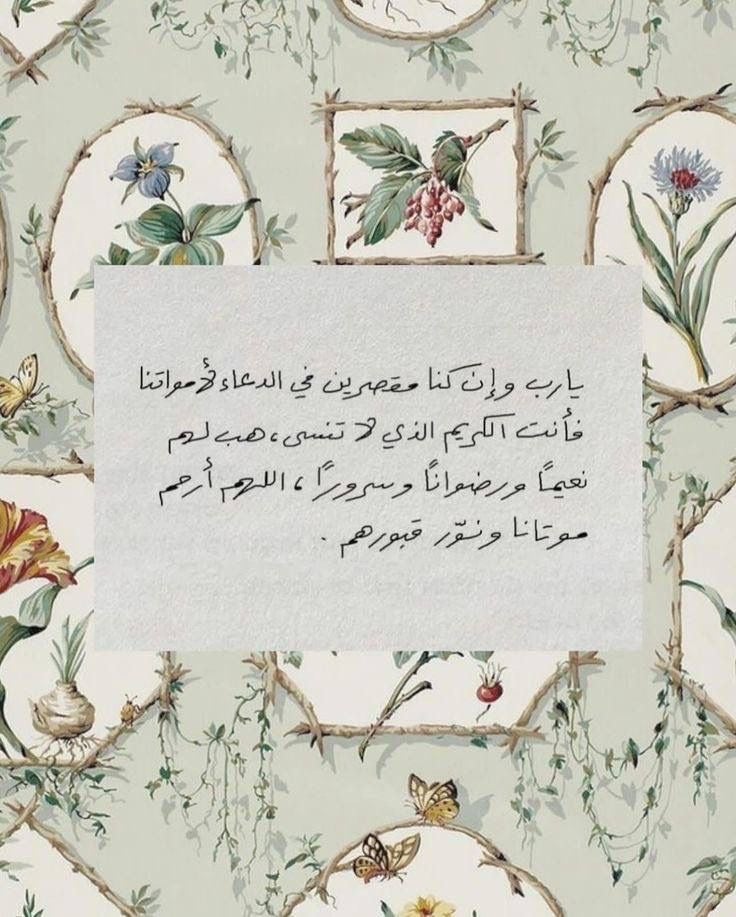 يارب وإن كنا مقصرين في الدعاء لأمواتنا
فأنت الكريم الذي لا تنسى، هب لهم
نعيماً ورضواناً وسروراً، اللهم أرحم
موتانا ونوّر قبورهم .